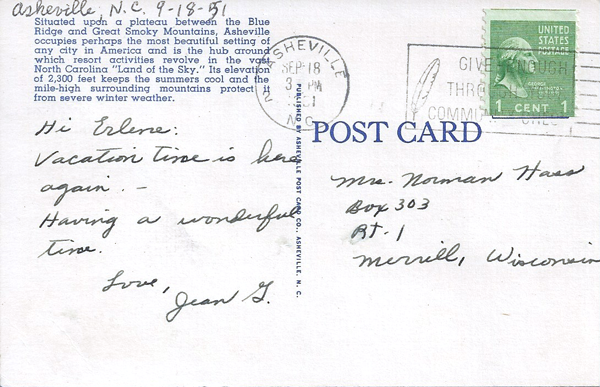 Asheville, N.C. 9-18-51
Situated upon a plateau between the Blue
Ridge and Great Smoky Mountains, Asheville
occupies perhaps the most beautiful setting of
any city in America and is the hub around
which resort activities revolve in the vast
North Carolina "Land of the Sky." Its elevation
of 2,300 feet keeps the summers cool and the
mile-high surrounding mountains protect it
from severe winter weather.
Hi Erlene:
Vacation time is here
again. -
Having a wonderful
time.
Love,
Jean G.
PUBLISHED BY ASHEVILLE POST CARD CO., ASHEVILLE, N. C.
ASHEVILLE
SEP 18
PM
N.C.
GIVE ENOUGH
UNITED
STATES
POSTAGE
1 CENT 1
POST CARD
Mrs. Norman Hass
Box 303
Rt-1
Merrill, Wisconsin